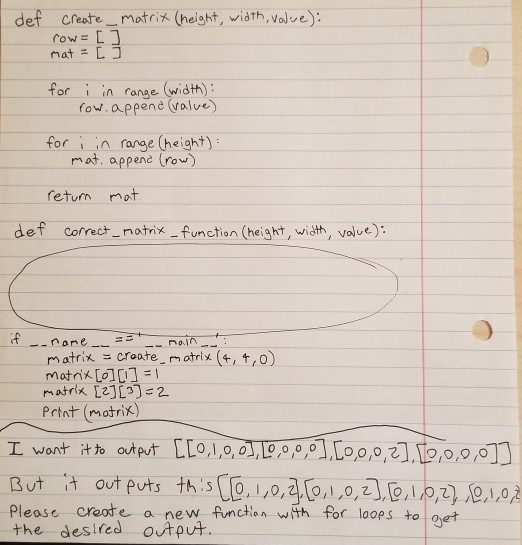 def create_matrix (height, width, value):
row = [ ]
mat = [ ]
for i in range (width):
row.append (value)
for i in range (height):
mat.append (row)
return mat
def correct_matrix_function (height, width, value):
if __name__ == '__main__':
matrix = create_matrix (4, 4, 0)
matrix [0][1] = 1
matrix [2][3] = 2
Print (matrix)
I want it to output [[0,1,0,0],[0,0,0,0],[0,0,0,2],[0,0,0,0]]
But it outputs this [[0,1,0,2],[0,1,0,2],[0,1,0,2],[0,1,0,2
Please create a new function with for loops to get
the desired output.